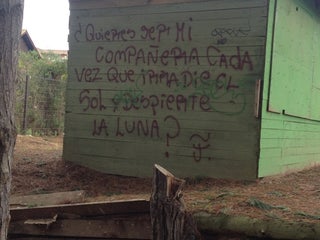 ¿Quieres ser mi
compañeria cada
vez que irradie el
sol y despierte
la luna?